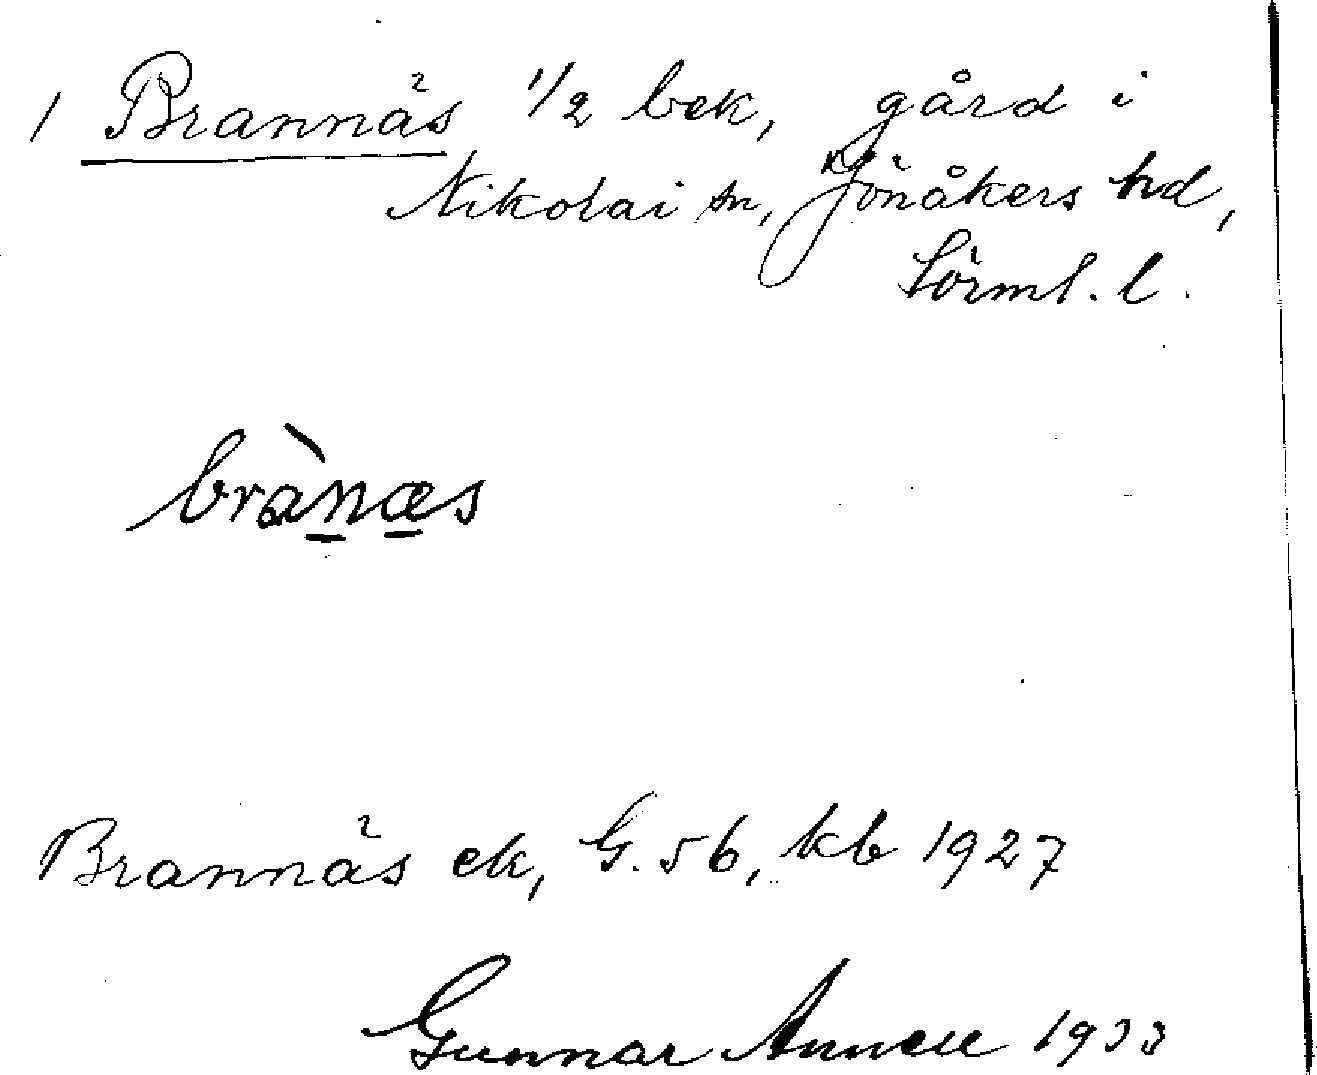 1 Brannäs 1/2 bek, gård i
Nikolai sn, Jönåkers hd,
Sörml. l.
brànæs
Brannäs ek, G. 56, kb 1927
Gunnar Annell 1933